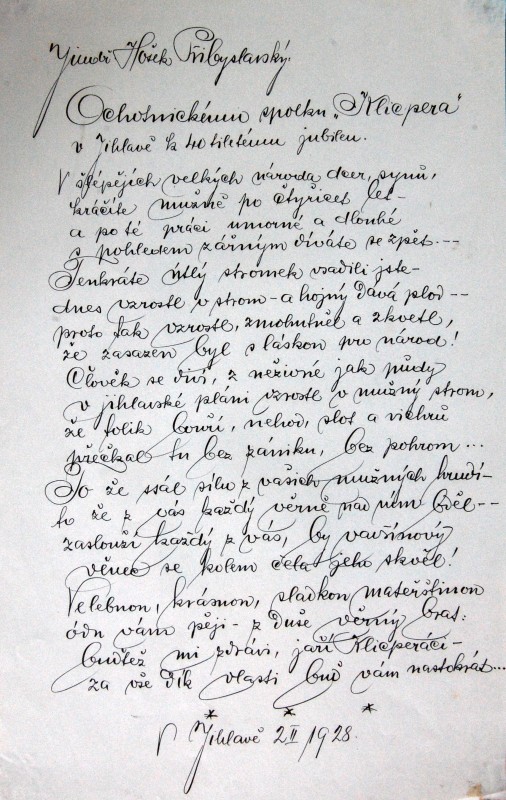 Jindř. Hošek Přibyslavský.
Ochotnickému spolku „Klicpera“
v Jihlavě k 40tiletému jubileu.
V štěpějích velkých národa dcer, synů,
kráčíte mužně po čtyřicet let-
a po té práci úmorné a dlouhé
s pohledem zářným díváte se zpět...
Tenkráte útlý stromek vsadili jste-
dnes vzrostl v strom - a hojný dává plod --
proto tak vzrostl, zmohutněl a zkvetl,
že zasazen byl s láskou pro národ!
Člověk se diví, z neživné jak půdy
v jihlavské pláni vzrostl v mužný strom,
že tolik bouří, nehod, slot a vichrů
přečkal tu bez zániku, bez pohrom...
To že ssál sílu z vašich mužných hrudí-
to že z vás každý věrně nad ním bděl--
zaslouží každý z vás, by vavřínový
věnec se kolem čela jeho skvěl!
Velebnou, krásnou, sladkou mateřštinou
ódu vám pěji - z duše věrný brat:
buďtež mi zdrávi, jaří Klicperáci-
za vše dík vlasti buď vám nastokrát...
* * *
V Jihlavě 2/II 1928.